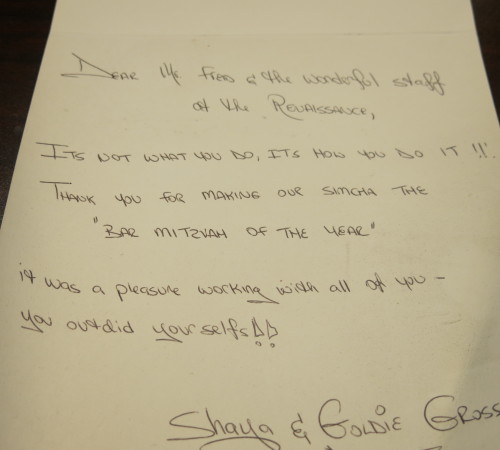 Dear Mr Fred & the wonderful staff
at the Renaissance,
ITS NOT WHAT YOU DO, ITS HOW YOU DO IT !!!
THANK YOU FOR MAKING OUR SIMCHA THE
"BAR MITZVAH OF THE YEAR"
it was a pleasure working with all of you -
you outdid yourselfs!!
Shaya & GOLDIE GROSS